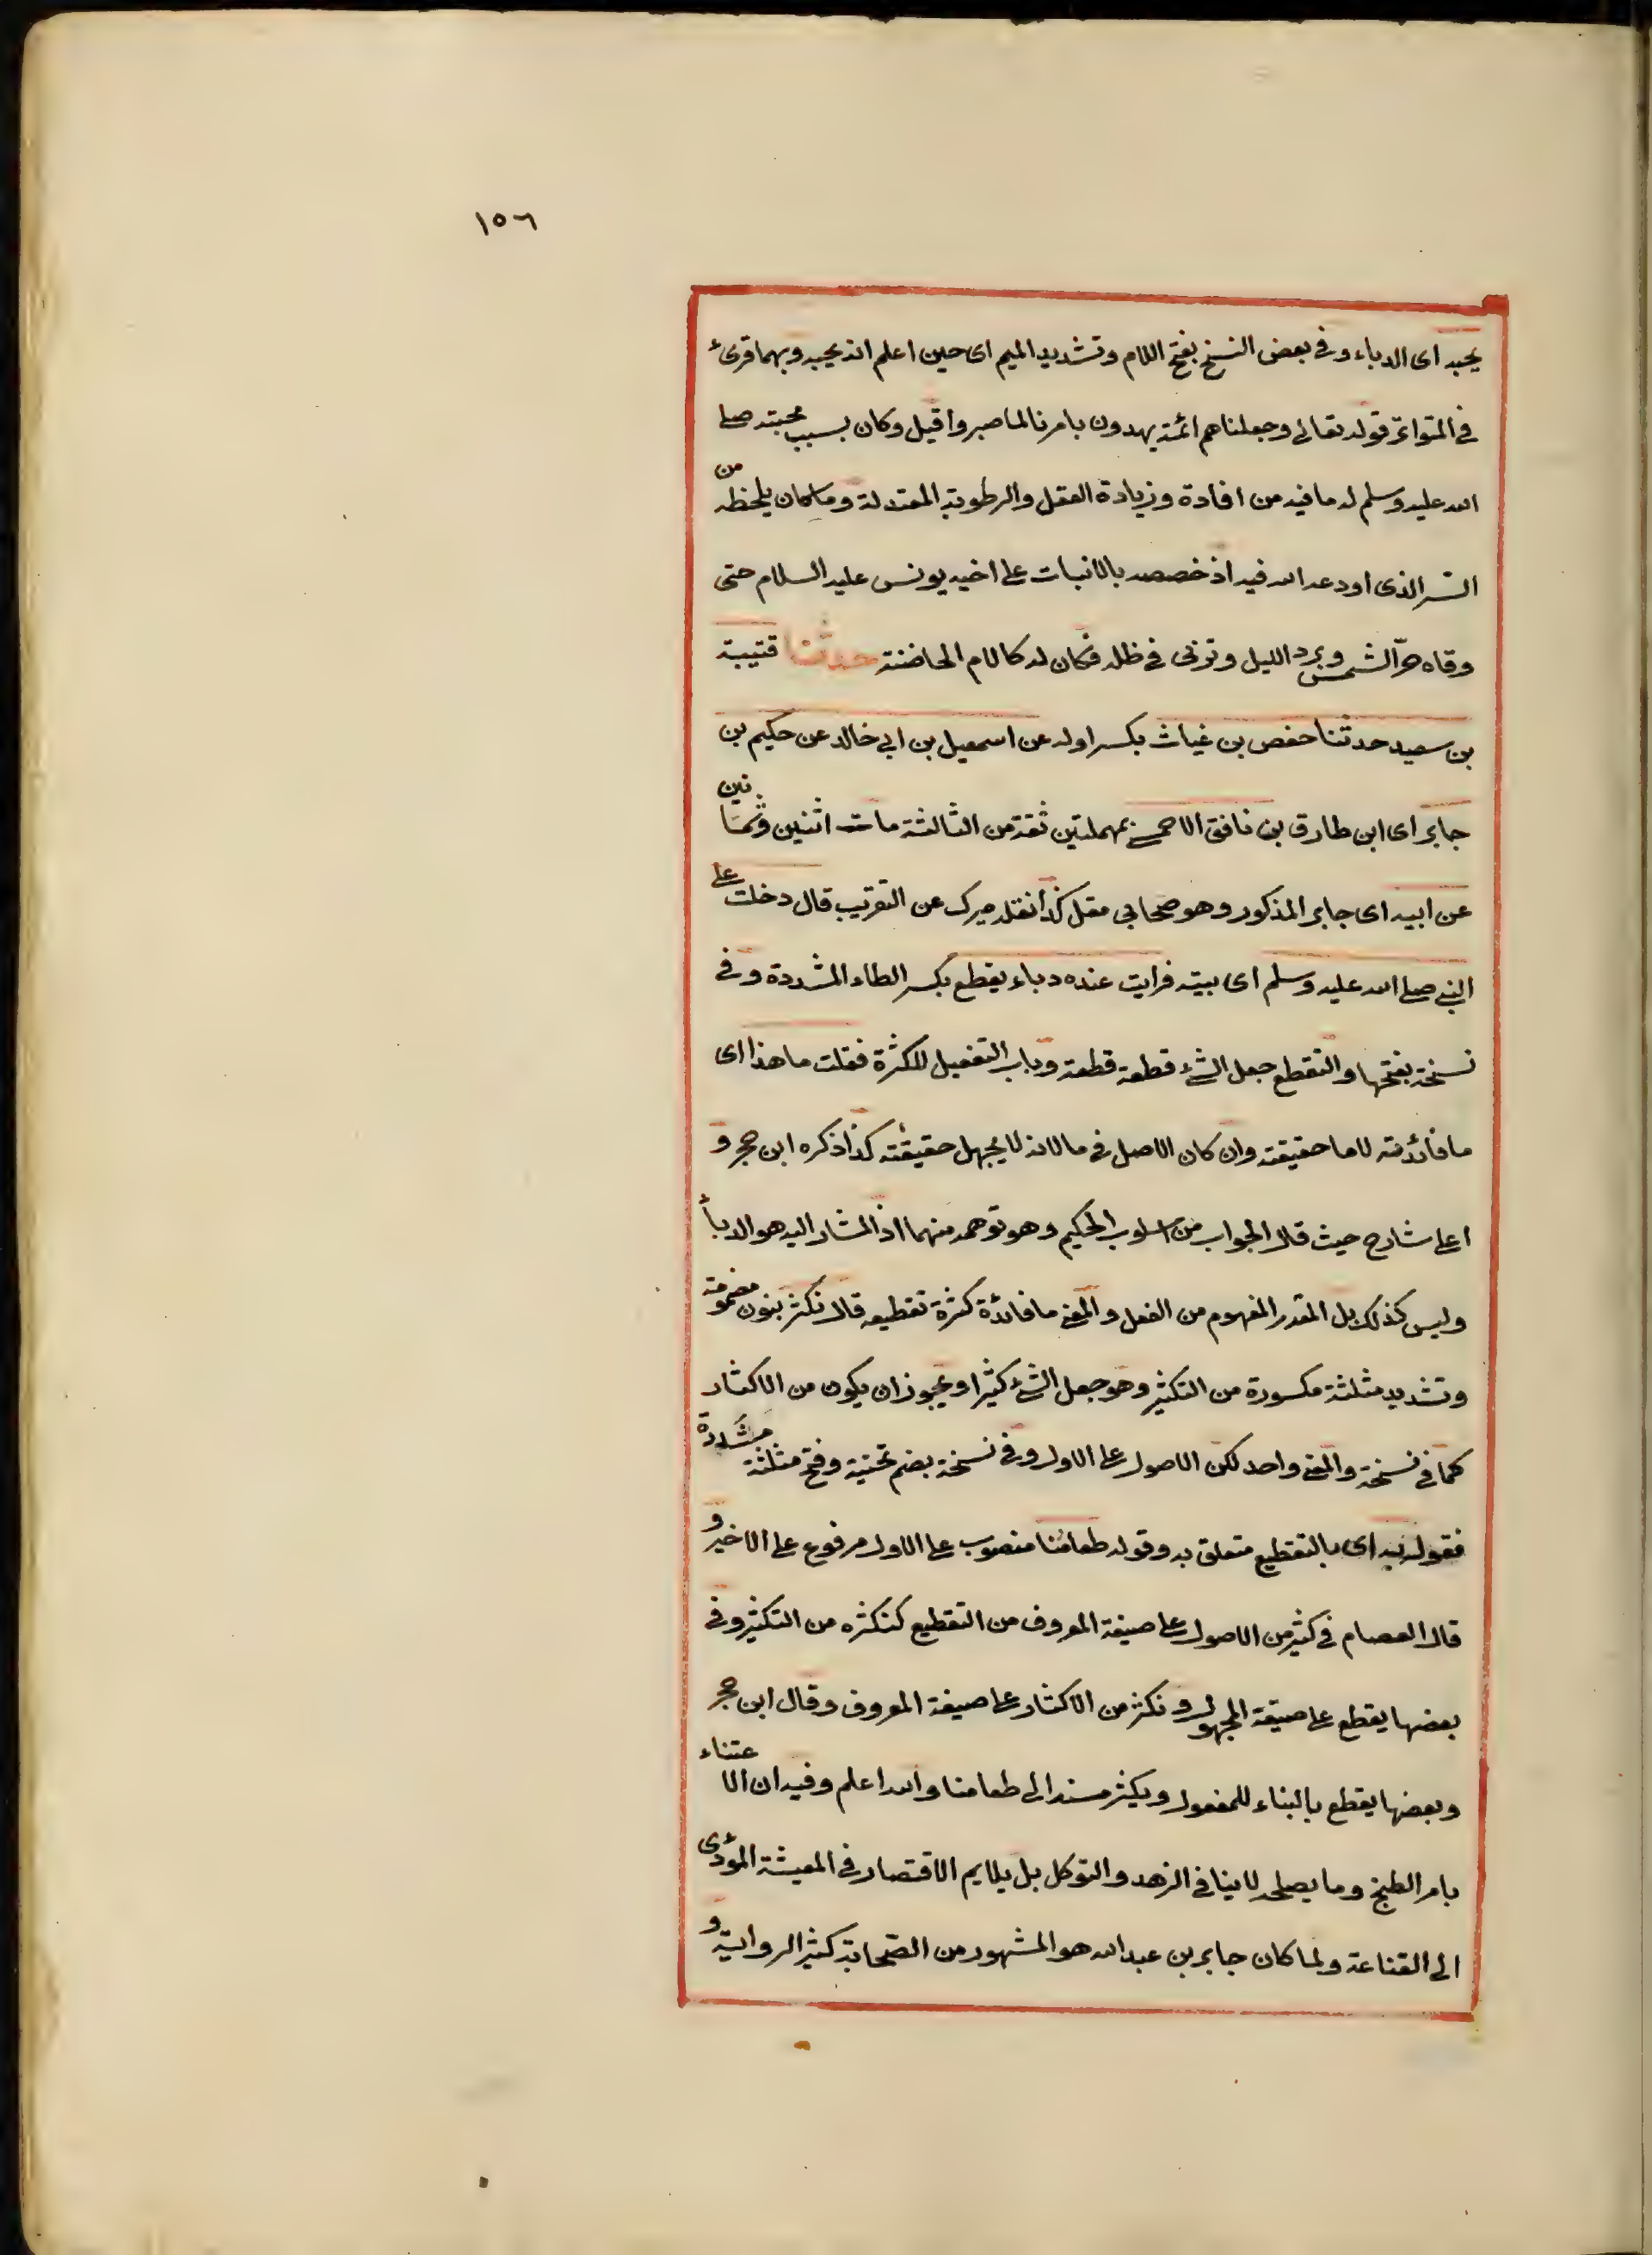 ١٥٦
يحبه اى الدباء وفى بعض النسخ بفتح اللام وتشديد الميم اى حين اعلم انه يحبه وبهما قرىء
فى المتواتر قوله تعالى وجعلناهم ائمة يهدون بامرنا لما صبروا قيل وكان بسبب محبته صلى
الله عليه وسلم له ما فيه من افادة وزيادة العقل والرطوبة المعتدلة وما كان يلحظه من
السر الذى اودعه الله فيه اذ خصصه بالانبات على اخيه يونس عليه السلام حتى
وقاه حرّ الشمس وبرد الليل وتربى فى ظله فكان له كالام الحاضنة حدثنا قتيبة
بن سعيد حدثنا حفص بن غياث بكسر اوله عن اسمعيل بن ابى خالد عن حكيم بن
جابر اى ابن طارق بن نافق الاحمسى بمهملتين ثقة من الثالثة مات اثنين وثمانين
عن ابيه اى جابر المذكور وهو صحابى مقل كذا نقله ميرك عن التقريب قال دخلت على
النبى صلى الله عليه وسلم اى بيته فرايت عنده دباء يقطع بكسر الطاء المشددة وفى
نسخة بفتحها والتقطع جعل الشىء قطعة قطعة وباب التفعيل للكثرة فقلت ما هذا اى
ما فائدته لا ما حقيقته وان كان الاصل فى ما لانه لا يجهل حقيقته كذا ذكره ابن حجر و
اعلى شارح حيث قال الجواب من اسلوب الحكيم وهو توهم منهما اذ المشار اليه هو الدبأ
وليس كذلك بل المقدر المفهوم من الفعل والمعنى ما فائدة كثرة تقطيعه قال نكثر بنون مضمومة
وتشديد مثلثة مكسورة من التكثير وهو جعل الشىء كثيرا ويجوز ان يكون من الاكثار
كما فى نسخة والمعنى واحد لكن الاصول على الاول وفى نسخة بضم تحتية وفتح مثلثة مشددة
فقوله به اى بالتقطيع متعلق به وقوله طعامنا منصوب على الاول مرفوع على الاخير و
قال العصام فى كثير من الاصول على صيغة المعروف من التقطيع كنكثره من التكثير وفى
بعضها يقطع على صيغة المجهول ونكثر من الاكثار على صيغة المعروف وقال ابن حجر
وبعضها يقطع بالبناء للمفعول ويكثر مسند الى طعامنا والله اعلم وفيه ان الاعتناء
بامر الطبخ وما يصلحه لا ينافى الزهد والتوكل بل يلايم الاقتصار فى المعيشة المؤدى
الى القناعة ولما كان جابر بن عبد الله هو المشهور من الصحابة كثير الرواية و